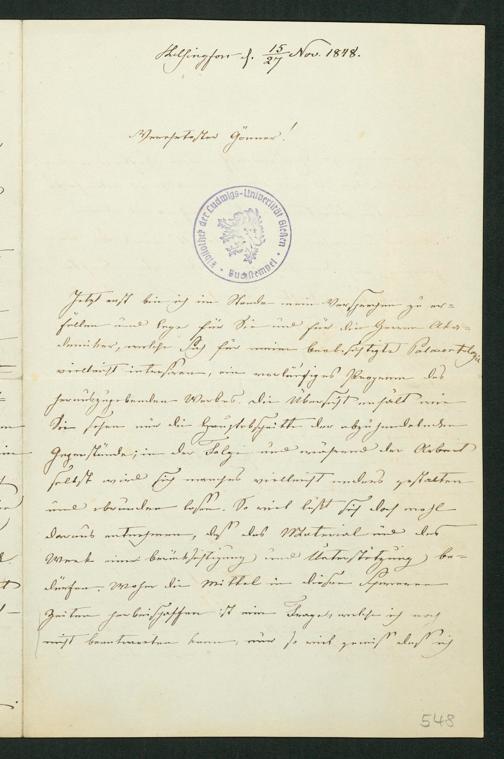 Helsingfors d. 15/27 Nov. 1848.
Verehrtester Gönner!
Bibliothek der Ludwigs-Universität Gießen
Buchstempel
Jetzt erst bin ich im Stande mein Versprechen zu er=
füllen und lege für Sie und für die Herren Aka=
demiker, welche sich für meine beabsichtigte Palaeontologie
vielleicht interessiren, ein vorläufiges Programm des
herauszugebenden Werkes. Die Übersicht enthält wie
Sie sehen nur die Hauptabschnitte der abzuhandelnden
Gegenstände; in der Folge und während der Arbeit
selbst wird sich manches vielleicht anders gestalten
und abrunden lassen. So viel läßt sich doch wohl
daraus entnehmen, daß das Material und das
Werk einer Berücksichtigung und Unterstützung be=
dürfen. Woher die Mittel in diesen schweren
Zeiten herbeischaffen ist eine Frage, welche ich noch
nicht beantworten kann, nur so viel gewiss dass ich
548